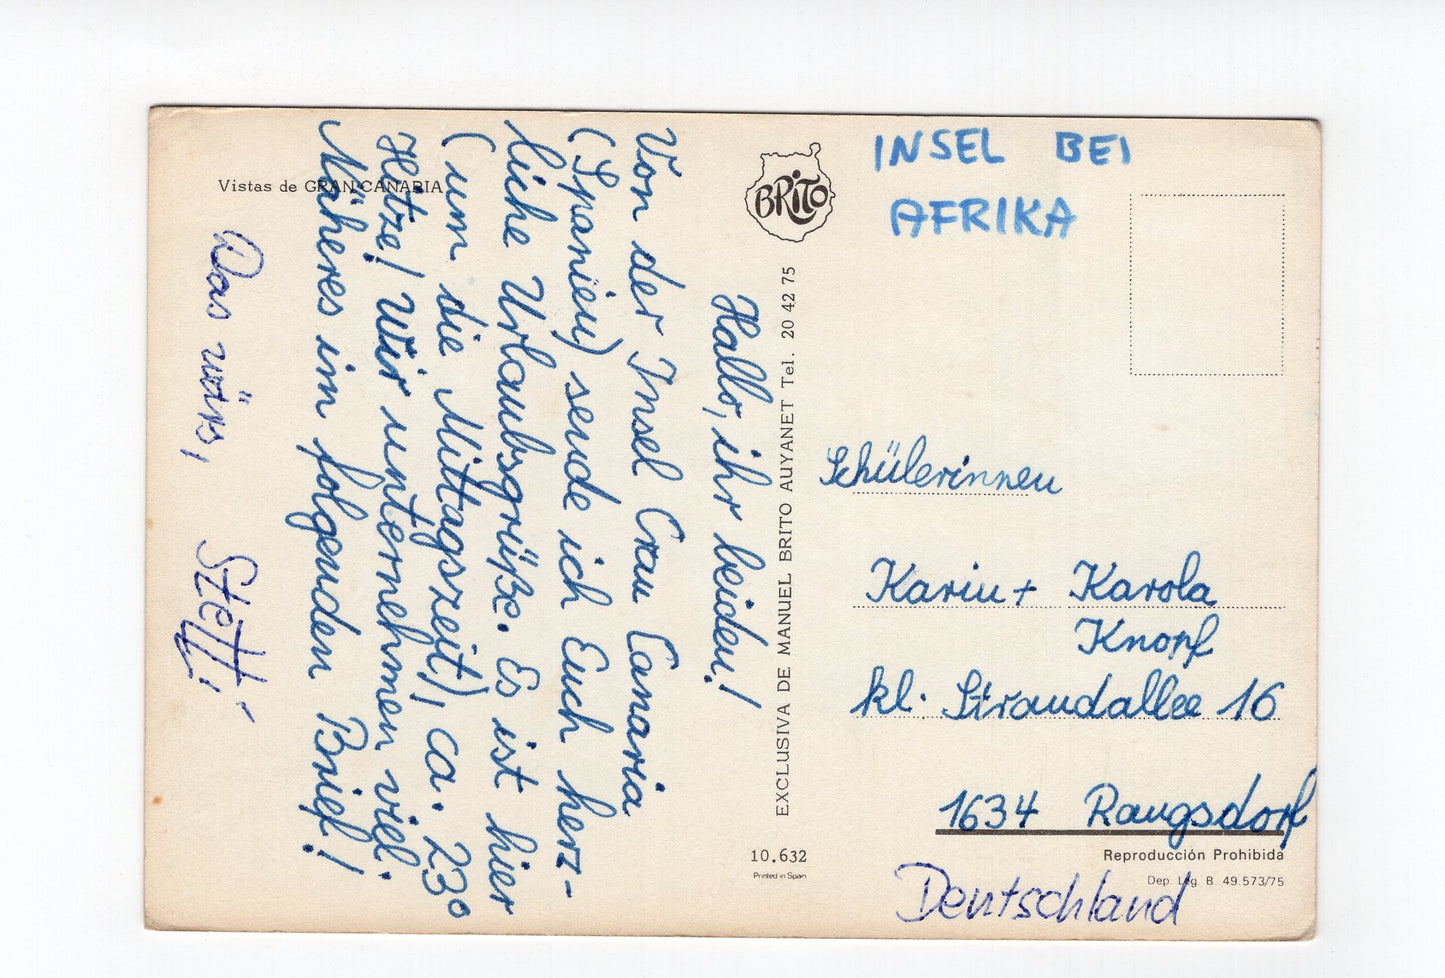 Vistas de GRAN CANARIA
Hallo, ihr beiden!
Von der Insel Gran Canaria
(Spanien) sende ich Euch herz-
liche Urlaubsgrüße. Es ist hier
(um die Mittagszeit), ca. 23°
Hitze! Wir unternehmen viel.
Näheres im folgenden Brief!
Das wärs,
Steffi
BRITO
EXCLUSIVA DE MANUEL BRITO AUYANET Tel. 20 42 75
10.632
Printed in Spain
INSEL BEI
AFRIKA
Schülerinnen
Karin + Karola
Knopf
kl. Strandallee 16
1634 Rangsdorf
Reproducción Prohibida
Dep. Leg. B. 49.573/75
Deutschland